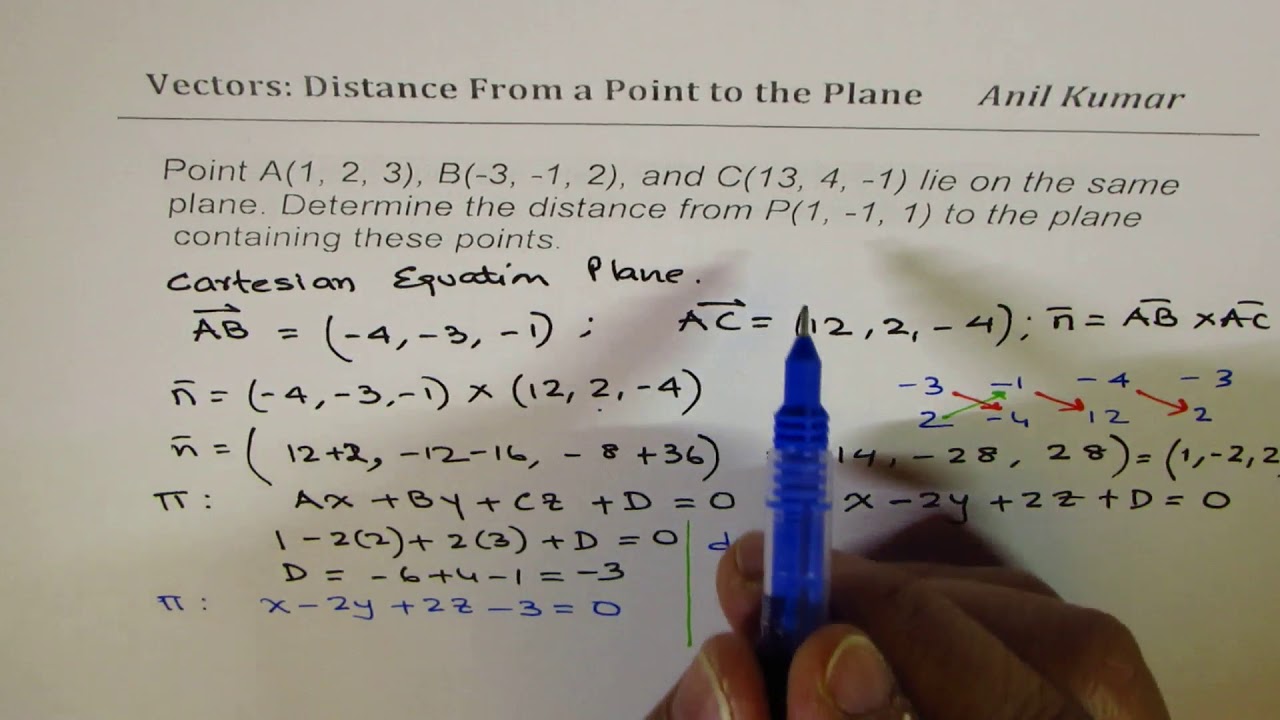 Vectors: Distance From a Point to the Plane Anil Kumar
Point A(1, 2, 3), B(-3, -1, 2), and C(13, 4, -1) lie on the same
plane. Determine the distance from P(1, -1, 1) to the plane
containing these points.
Cartesian Equation Plane.
AB = (-4, -3, -1) ; AC = (12, 2, -4); n̄ = AB × AC
n̄ = (-4, -3, -1) × (12, 2, -4)
-3 -1 -4 -3
2 -4 12 2
n̄ = ( 12+2, -12-16, -8+36) 14, -28, 28) = (1, -2, 2
π : Ax + By + Cz + D = 0 x - 2y + 2z + D = 0
1 - 2(2) + 2(3) + D = 0 d
D = -6+4-1 = -3
π : x - 2y + 2z - 3 = 0